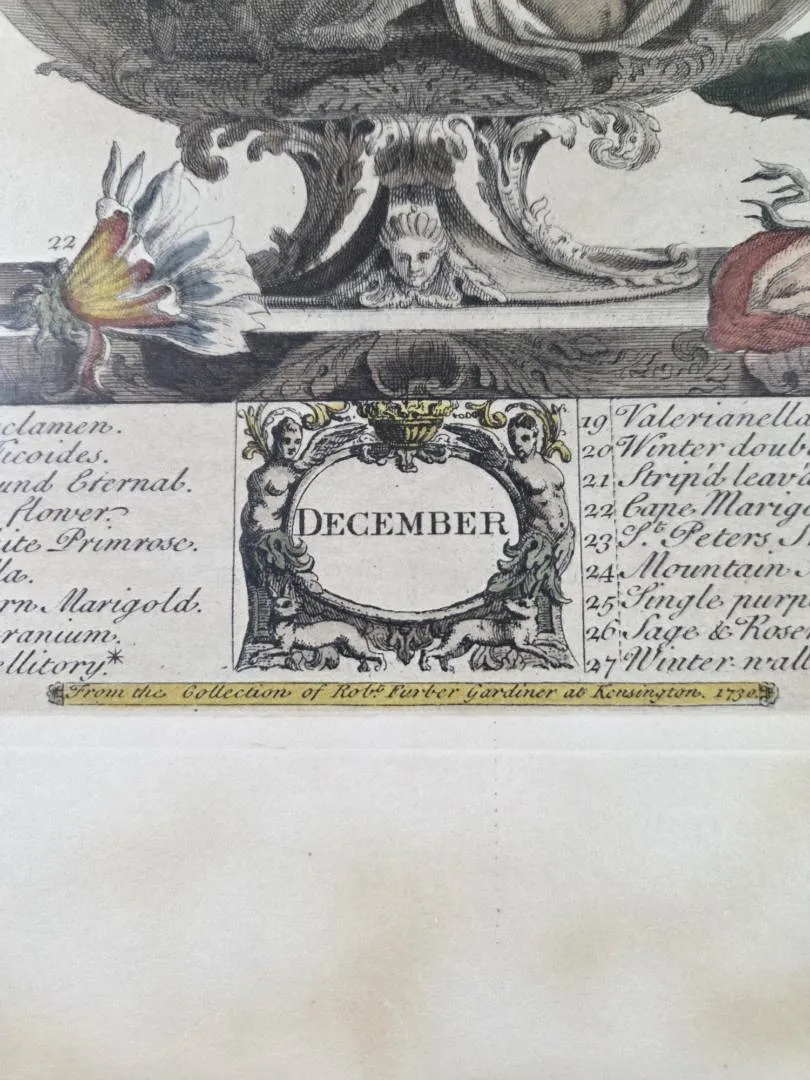 22
clamen.
icoides.
und Eternal.
flower.
ite Primrose.
la.
rn Marigold.
ranium.
ellitory.*
DECEMBER
19 Valerianella
20 Winter doub
21 Strip'd leav'd
22 Cape Marig
23 St. Peters
24 Mountain
25 Single purp
26 Sage & Rose
27 Winter wall
From the Collection of Robt. Furber Gardiner at Kensington. 1730.